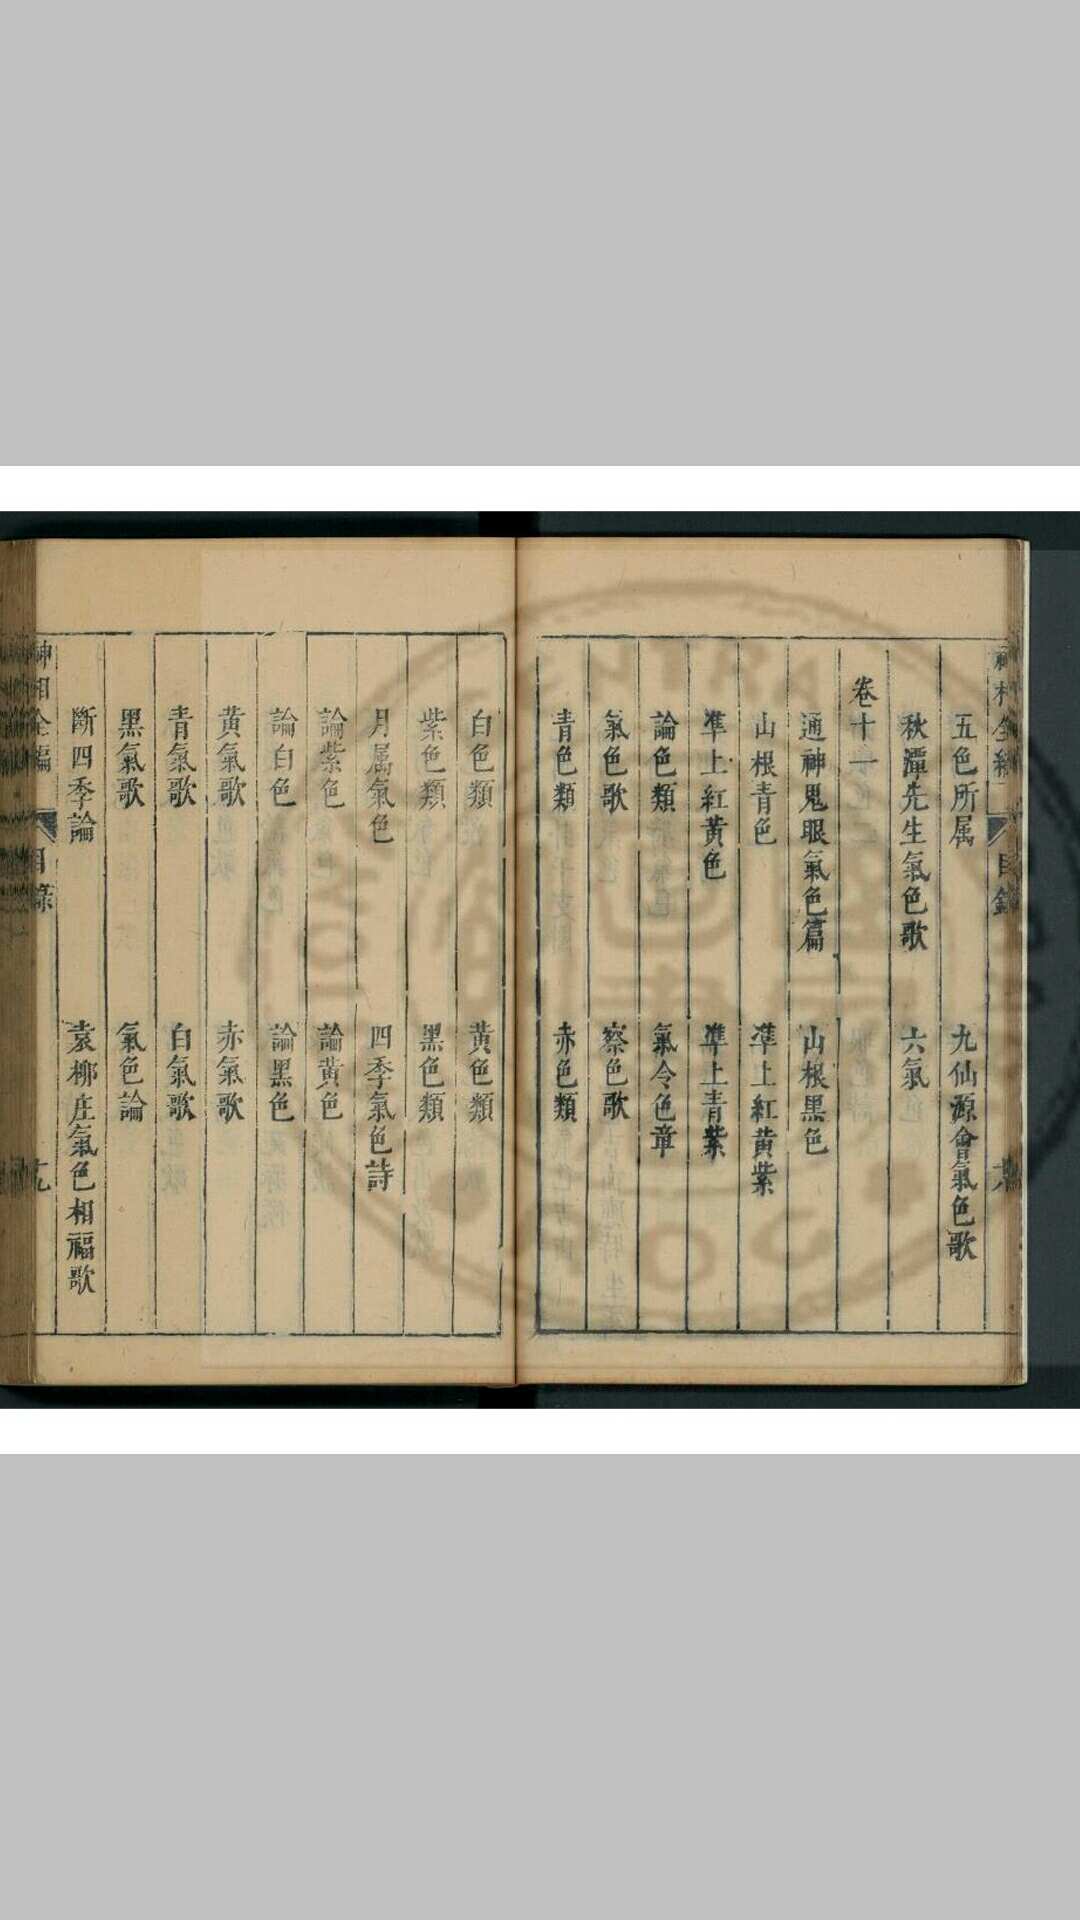 五色所属 九仙源會氣色歌
秋潭先生氣色歌 六氣
卷十一
通神鬼眼氣色篇 山根黑色
山根青色 準上紅黃紫
準上紅黃色 準上青紫
論色類 氣令色章
氣色歌 察色歌
青色類 赤色類
白色類 黃色類
紫色類 黑色類
月属氣色 四季氣色詩
論紫色 論黃色
論白色 論黑色
黃氣歌 赤氣歌
青氣歌 白氣歌
黑氣歌 氣色論
斷四季論 袁柳庄氣色相福歌
神相全編 目錄